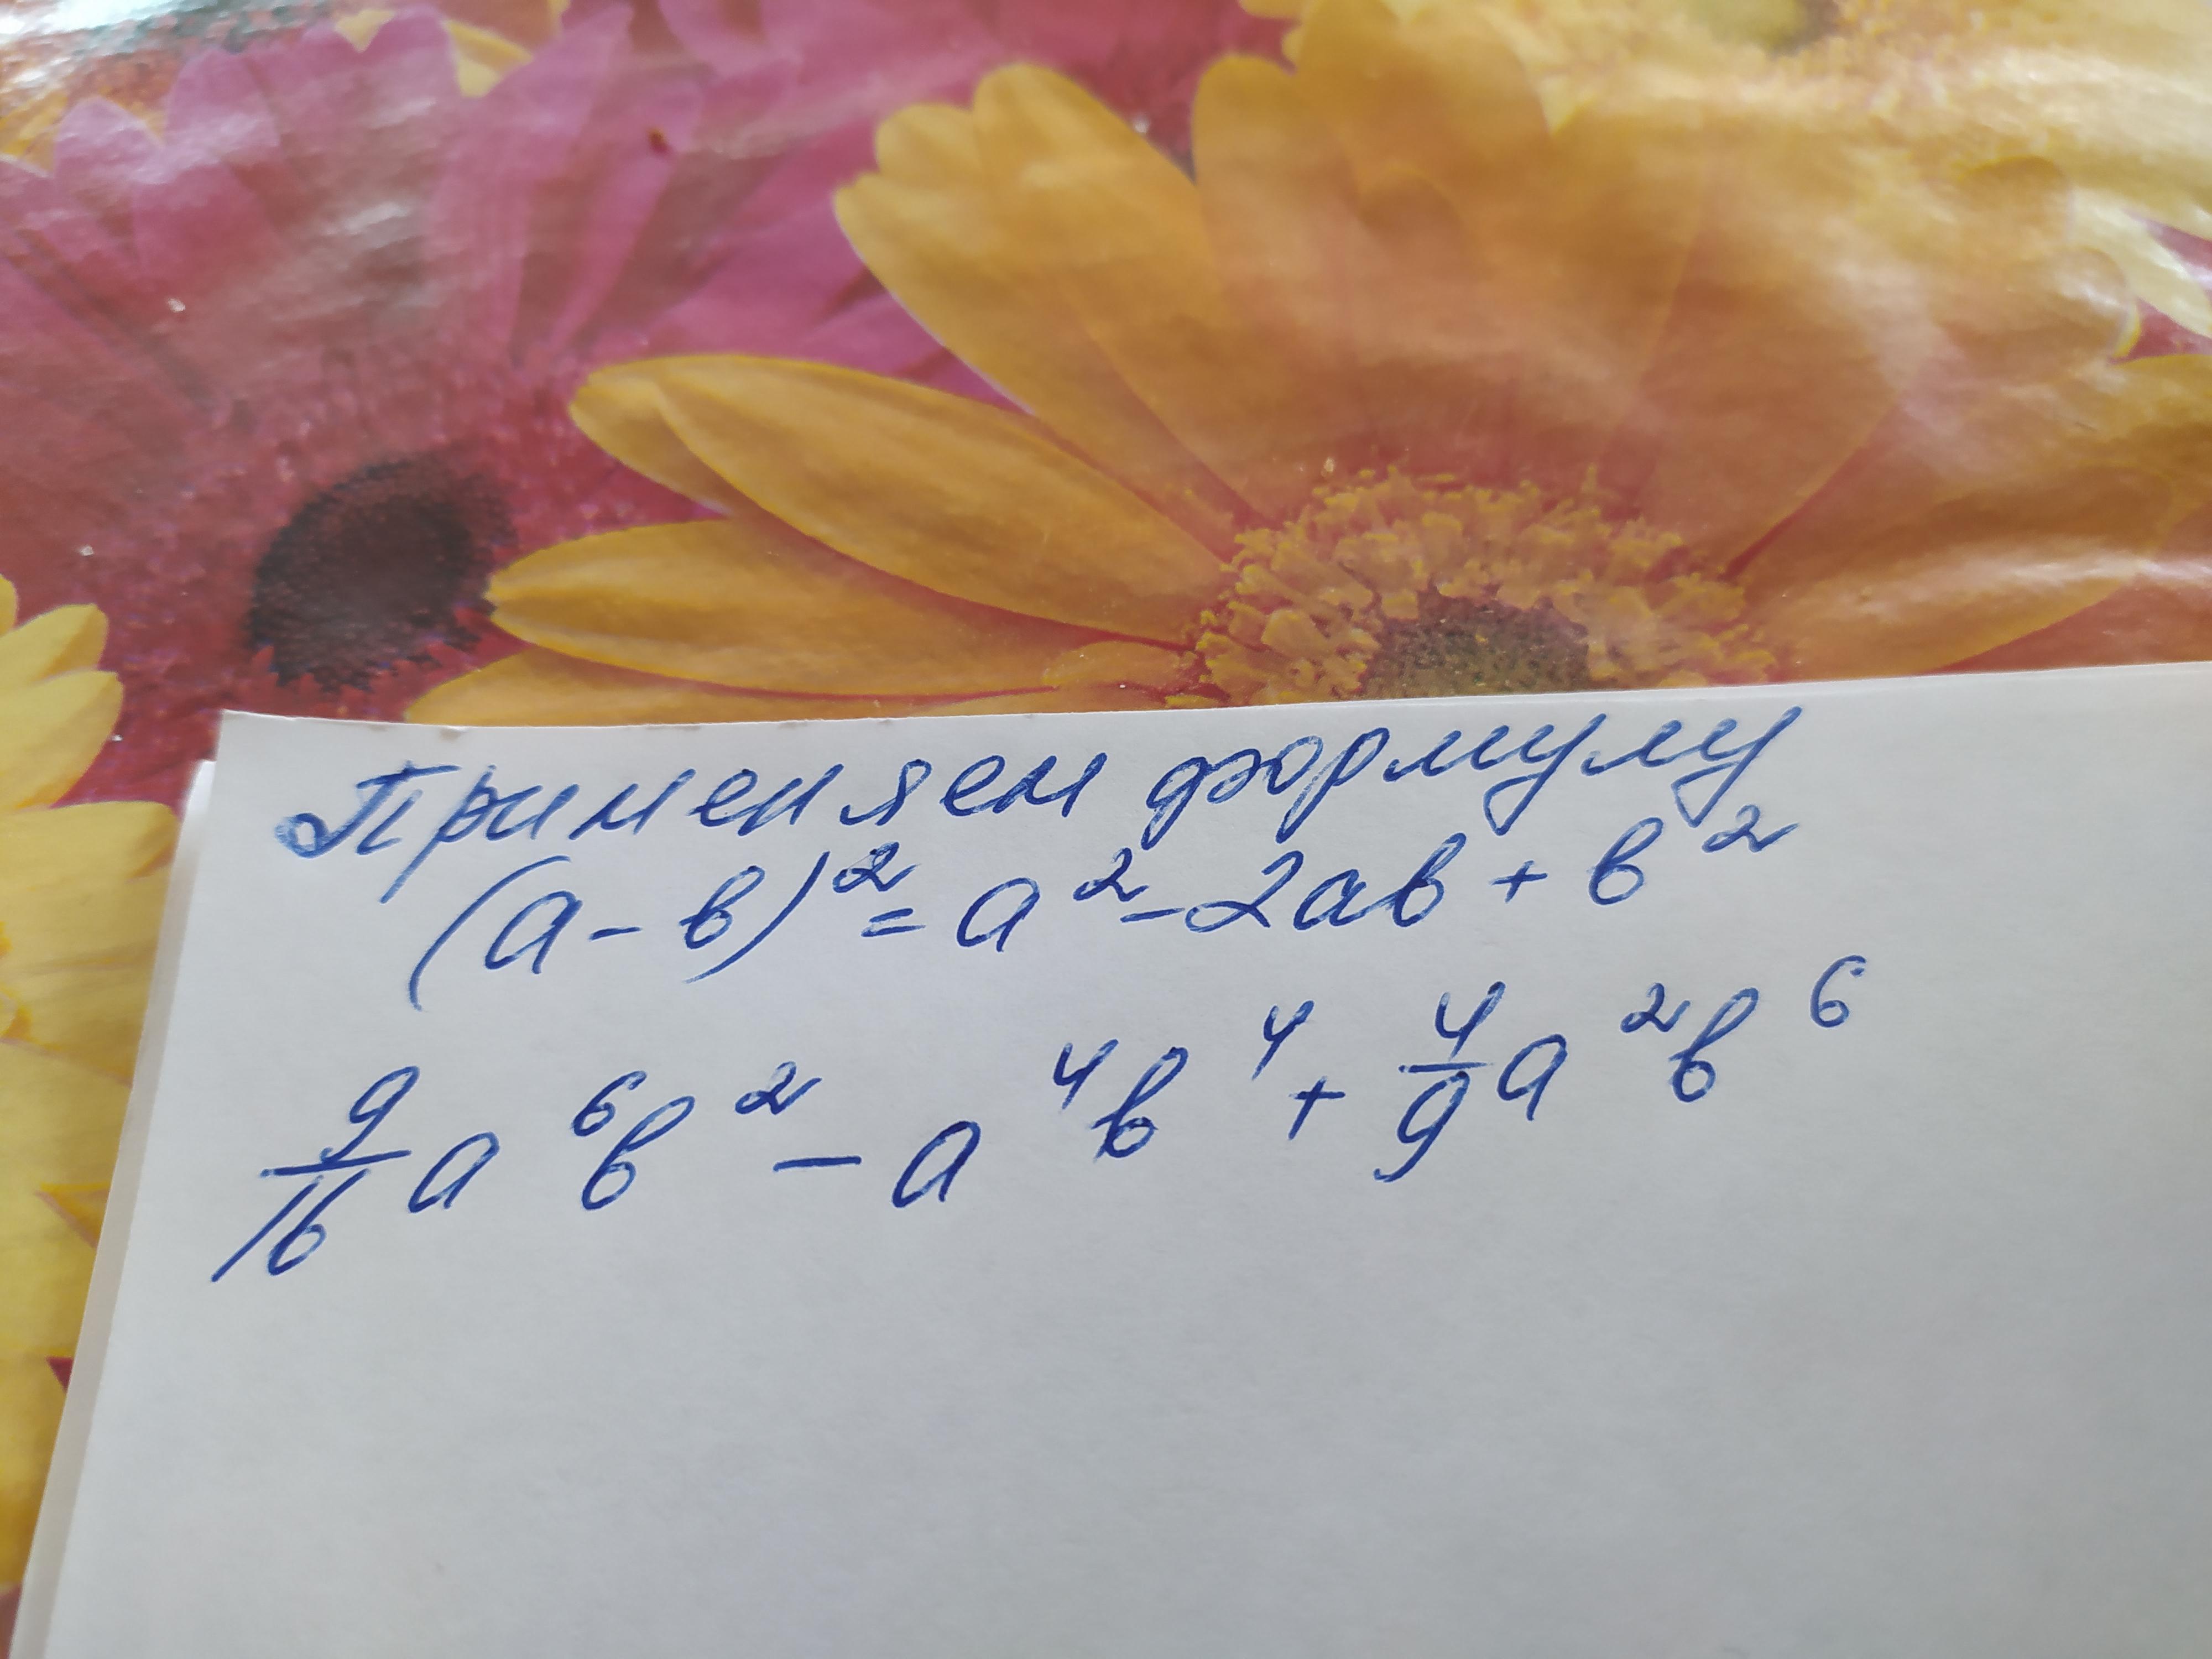 Применяем формулу
(а - в)² = а² - 2ав + в²
9/16 а⁶в² - а⁴в⁴ + 4/9 а²в⁶